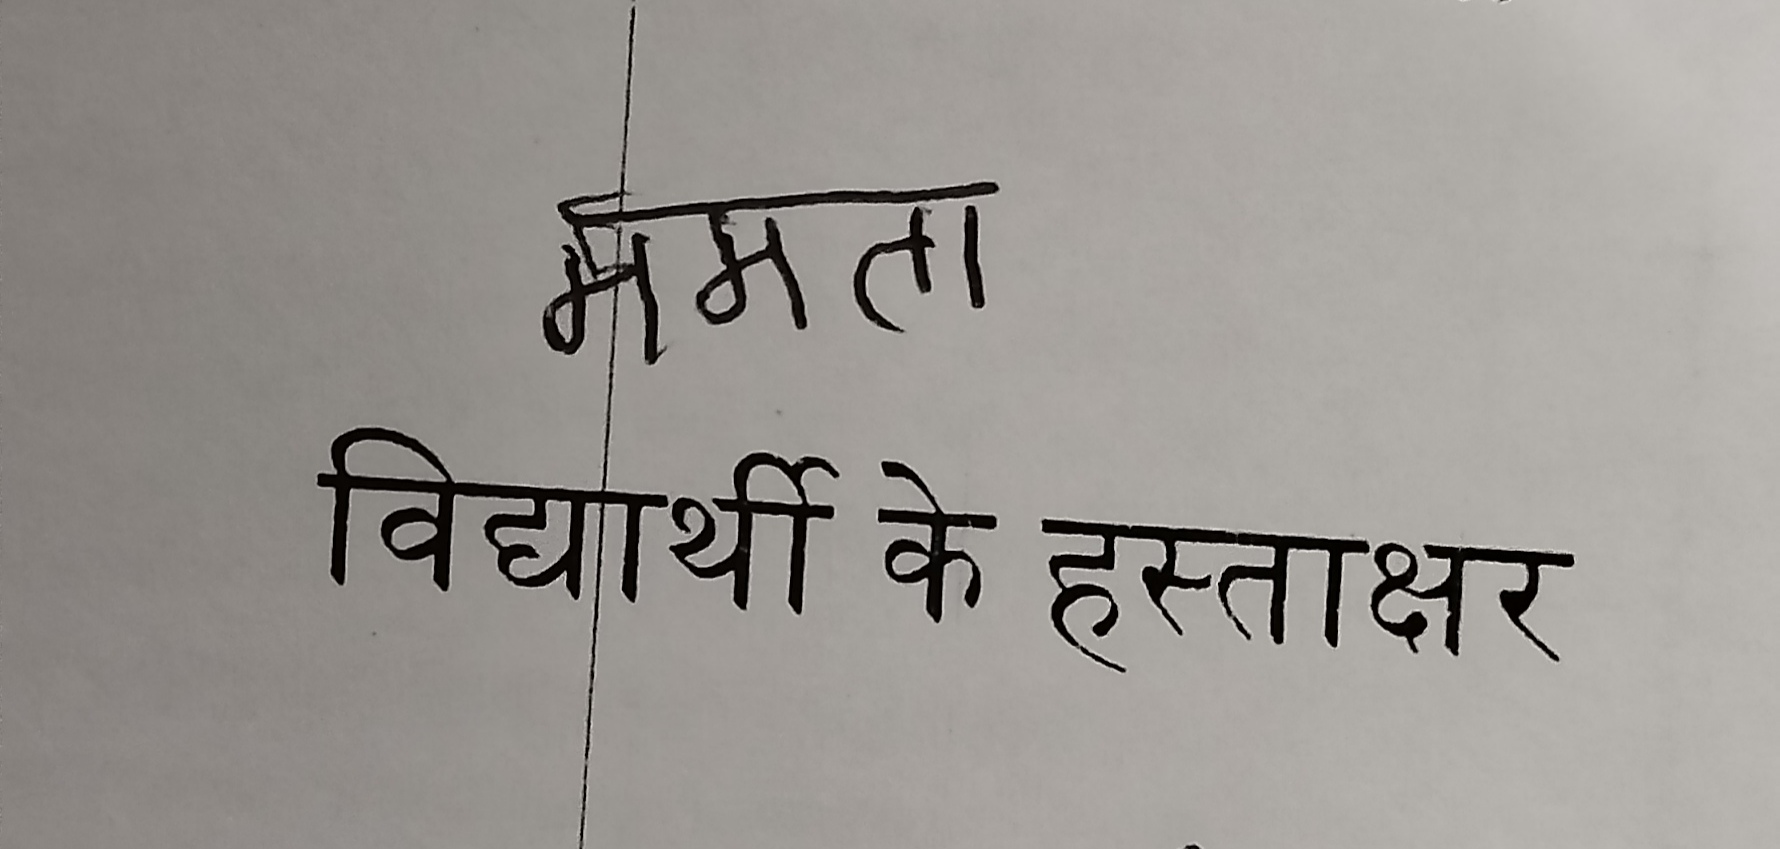 ममता
विद्यार्थी के हस्ताक्षर